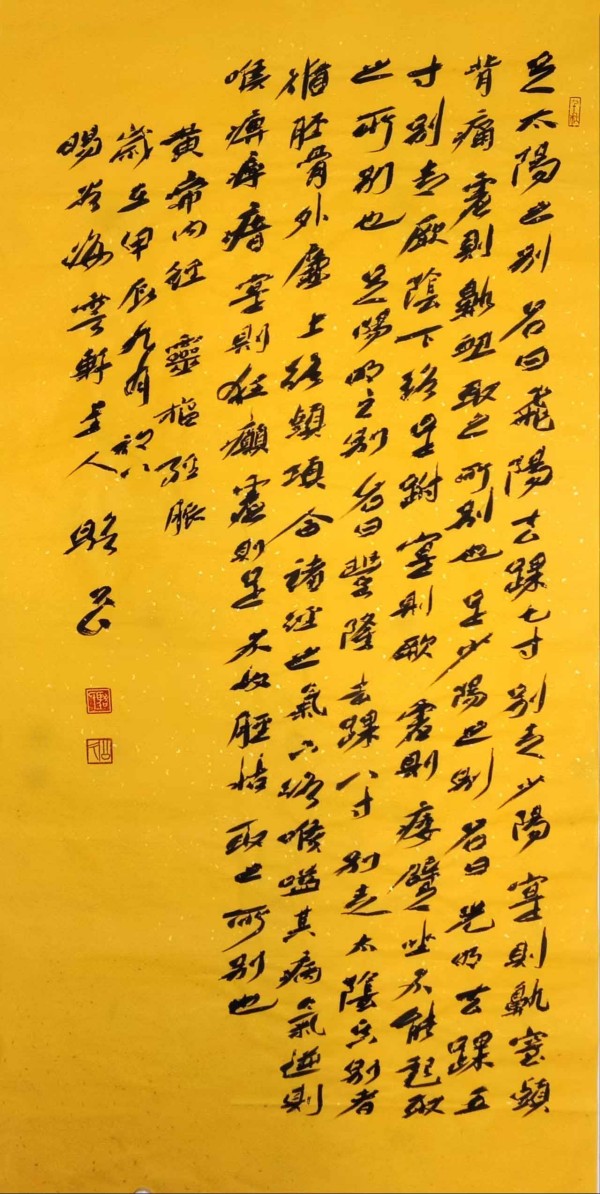 足太陽之别名曰飛陽去踝七寸别走少陽寔則鼽窒頭
背痛虛則鼽衄取之所别也足少陽之别名曰光明去踝五
寸别走厥陰下络足跗寔則厥虛則痿躄坐不能起取
之所别也足陽明之别名曰豐隆去踝八寸别走太陰其别者
循脛骨外廉上络頭項合諸经之氣下络喉嗌其病氣逆則
喉痹瘁瘖寔則狂癲虛則足不收脛枯取之所别也
黄帝内经靈樞经脈
歲在甲辰九月初八
海雲軒主人